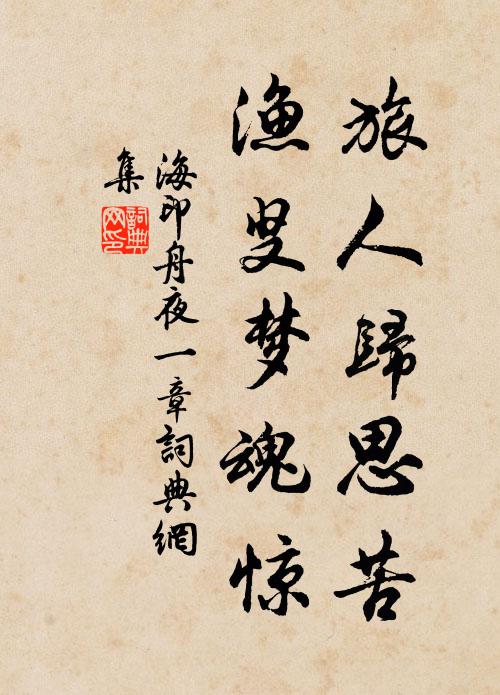 旅人歸思苦
渔叟梦魂惊
海印舟夜一章詞典網
集
詞典
网印